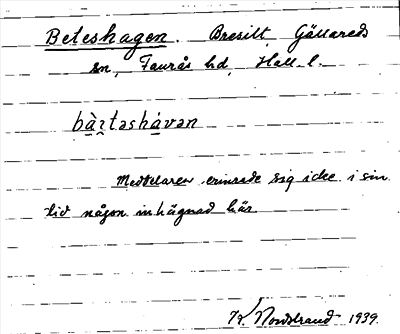 Beteshagen. Bresilt, Gällareds
sn, Faurås hd, Hall. l.
bà̤ɪ̯təshá̤vən
Meddelaren erinrade sig icke i sin
tid någon inhägnad här.
K. Nordstrand 1939.